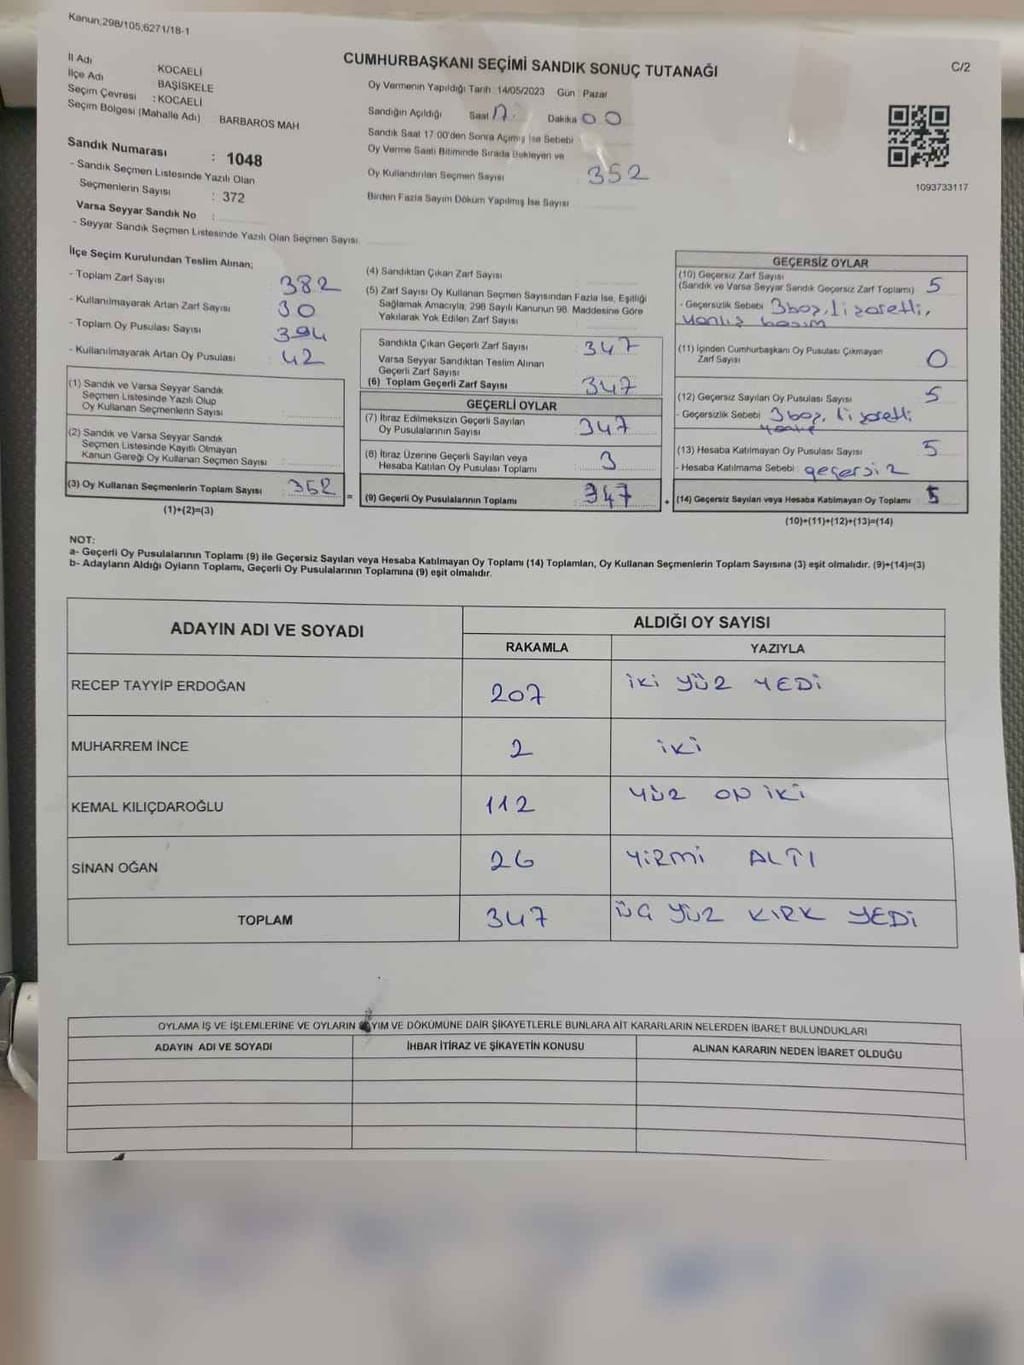 Kanun;298/105,6271/18-1
CUMHURBAŞKANI SEÇİMİ SANDIK SONUÇ TUTANAĞI
C/2
İl Adı KOCAELİ
İlçe Adı BAŞİSKELE
Seçim Çevresi : KOCAELİ
Seçim Bölgesi (Mahalle Adı) BARBAROS MAH
Sandık Numarası : 1048
- Sandık Seçmen Listesinde Yazılı Olan
Seçmenlerin Sayısı : 372
Varsa Seyyar Sandık No :
- Seyyar Sandık Seçmen Listesinde Yazılı Olan Seçmen Sayısı
Oy Vermenin Yapıldığı Tarih :14/05/2023 Gün : Pazar
Sandığın Açıldığı Saat 17. Dakika 00
Sandık Saat 17:00'den Sonra Açılmış İse Sebebi
Oy Verme Saati Bitiminde Sırada Bekleyen ve
Oy Kullandırılan Seçmen Sayısı 352
Birden Fazla Sayım Döküm Yapılmış İse Sayısı
1093733117
İlçe Seçim Kurulundan Teslim Alınan;
- Toplam Zarf Sayısı 382
- Kullanılmayarak Artan Zarf Sayısı 30
- Toplam Oy Pusulası Sayısı 394
- Kullanılmayarak Artan Oy Pusulası 42
(1) Sandık ve Varsa Seyyar Sandık
Seçmen Listesinde Yazılı Olup
Oy Kullanan Seçmenlerin Sayısı
(2) Sandık ve Varsa Seyyar Sandık
Seçmen Listesinde Kayıtlı Olmayan
Kanun Gereği Oy Kullanan Seçmen Sayısı
(3) Oy Kullanan Seçmenlerin Toplam Sayısı 352 =
(1)+(2)=(3)
(4) Sandıktan Çıkan Zarf Sayısı
(5) Zarf Sayısı Oy Kullanan Seçmen Sayısından Fazla İse, Eşitliği
Sağlamak Amacıyla, 298 Sayılı Kanunun 98. Maddesine Göre
Yakılarak Yok Edilen Zarf Sayısı
Sandıkta Çıkan Geçerli Zarf Sayısı 347
Varsa Seyyar Sandıktan Teslim Alınan
Geçerli Zarf Sayısı
(6) Toplam Geçerli Zarf Sayısı 347
GEÇERLİ OYLAR
(7) İtiraz Edilmeksizin Geçerli Sayılan
Oy Pusulalarının Sayısı 347
(8) İtiraz Üzerine Geçerli Sayılan veya
Hesaba Katılan Oy Pusulası Toplamı 3
(9) Geçerli Oy Pusulalarının Toplamı 347 +
GEÇERSİZ OYLAR
(10) Geçersiz Zarf Sayısı
(Sandık ve Varsa Seyyar Sandık Geçersiz Zarf Toplamı) 5
- Geçersizlik Sebebi 3 boş, 1 işaretli,
yanlış basım
(11) İçinden Cumhurbaşkanı Oy Pusulası Çıkmayan
Zarf Sayısı 0
(12) Geçersiz Sayılan Oy Pusulası Sayısı 5
- Geçersizlik Sebebi 3 boş, 1 işaretli
(13) Hesaba Katılmayan Oy Pusulası Sayısı 5
- Hesaba Katılmama Sebebi geçersiz
(14) Geçersiz Sayılan veya Hesaba Katılmayan Oy Toplamı 5
(10)+(11)+(12)+(13)=(14)
NOT:
a- Geçerli Oy Pusulalarının Toplamı (9) ile Geçersiz Sayılan veya Hesaba Katılmayan Oy Toplamı (14) Toplamları, Oy Kullanan Seçmenlerin Toplam Sayısına (3) eşit olmalıdır. (9)+(14)=(3)
b- Adayların Aldığı Oyların Toplamı, Geçerli Oy Pusulalarının Toplamına (9) eşit olmalıdır.
ADAYIN ADI VE SOYADI
ALDIĞI OY SAYISI
RAKAMLA YAZIYLA
RECEP TAYYİP ERDOĞAN 207 İKİ YÜZ YEDİ
MUHARREM İNCE 2 İKİ
KEMAL KILIÇDAROĞLU 112 YÜZ ON İKİ
SİNAN OĞAN 26 YİRMİ ALTI
TOPLAM 347 ÜÇ YÜZ KIRK YEDİ
OYLAMA İŞ VE İŞLEMLERİNE VE OYLARIN SAYIM VE DÖKÜMÜNE DAİR ŞİKAYETLERLE BUNLARA AİT KARARLARIN NELERDEN İBARET BULUNDUKLARI
ADAYIN ADI VE SOYADI İHBAR İTİRAZ VE ŞİKAYETİN KONUSU ALINAN KARARIN NEDEN İBARET OLDUĞU